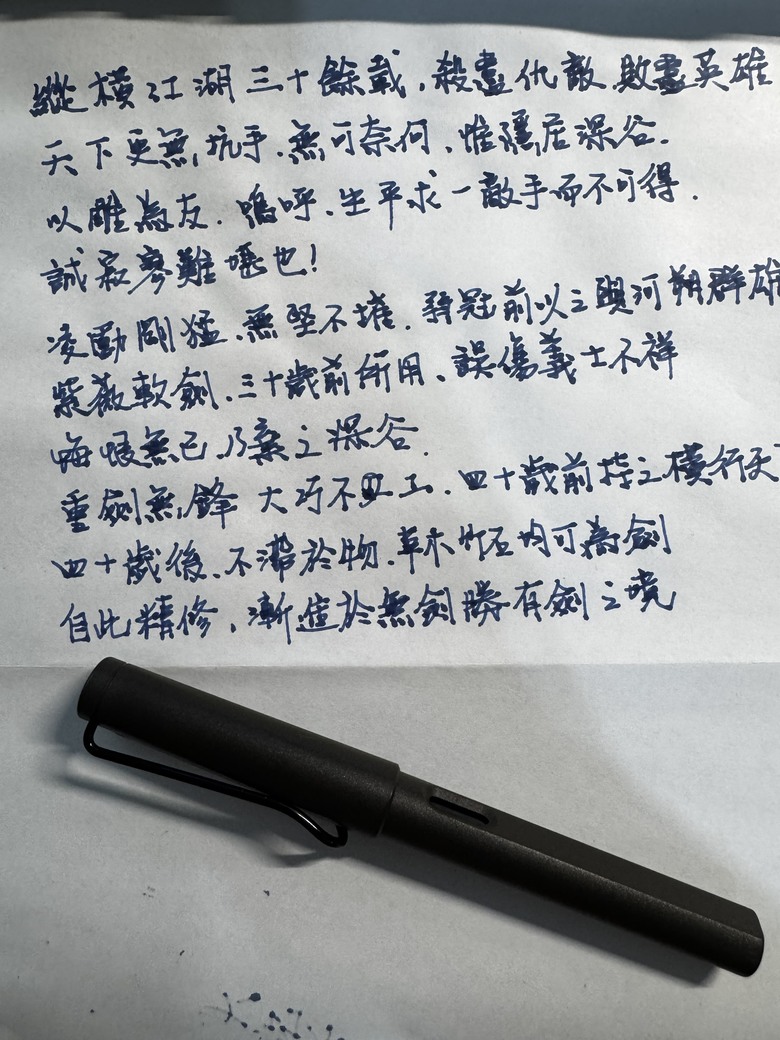 縱橫江湖三十餘載，殺盡仇敵，敗盡英雄
天下更無抗手，無可奈何，惟隱居深谷.
以雕為友. 嗚呼、生平求一敵手而不可得.
誠寂寥難堪也!
凌勁剛猛、無堅不摧. 弱冠前以之與河朔群雄
紫薇軟劍、三十歲前所用、誤傷義士不祥
悔恨無已乃棄之深谷.
重劍無鋒 大巧不工. 四十歲前持之橫行天
四十歲後、不滯於物、草木竹石均可為劍
自此精修，漸進於無劍勝有劍之境